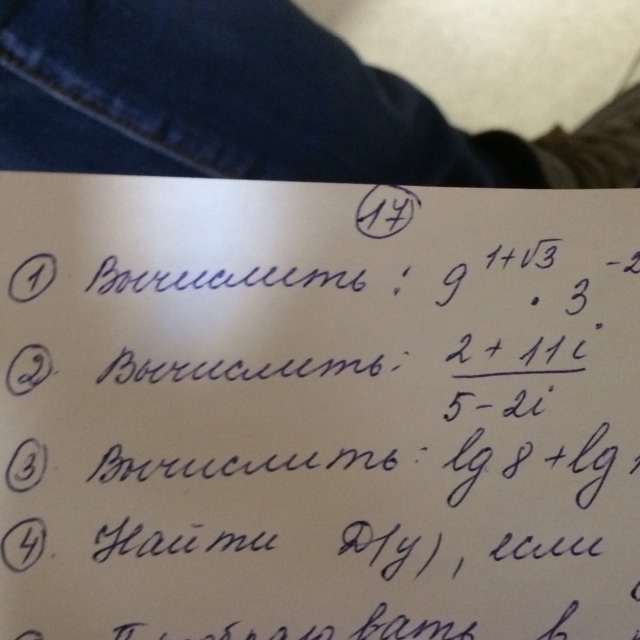 17
1 Вычислить: 9^(1+√3) · 3^(-2
2. Вычислить: (2+11i)/(5-2i)
3. Вычислить: lg 8 + lg
4. Найти D(y), если
в